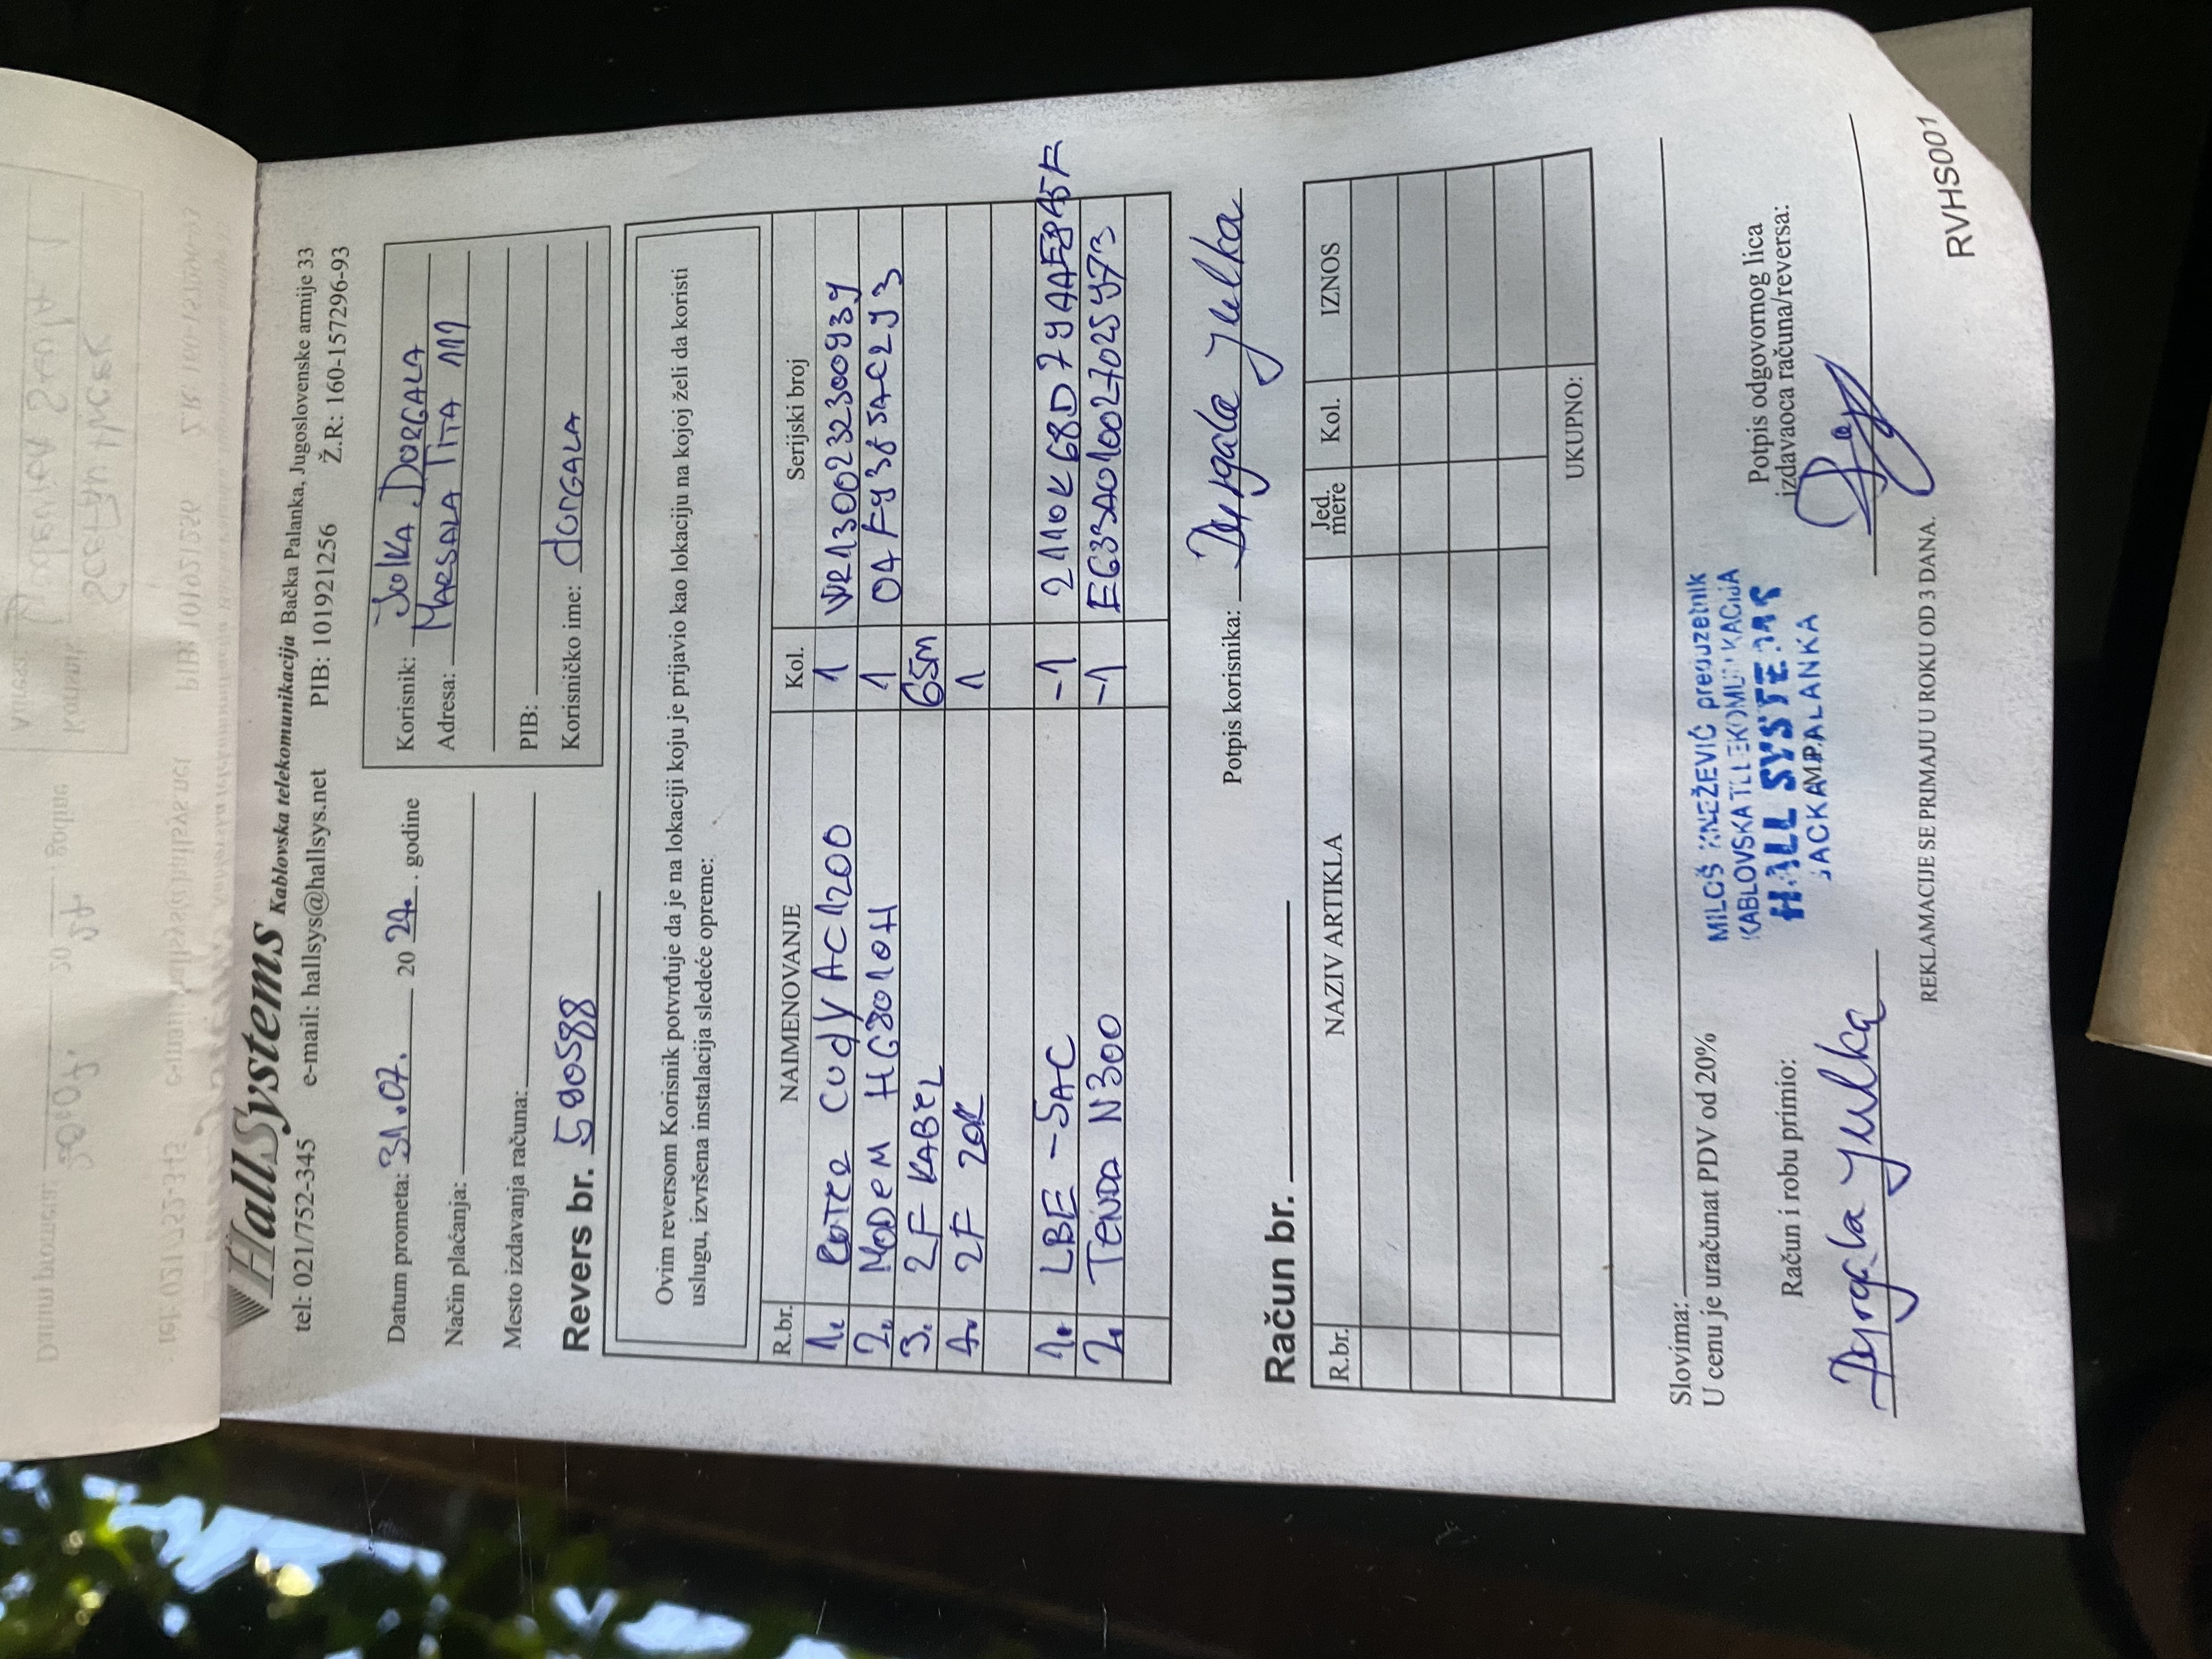 HallSystems Kablovska telekomunikacija Bačka Palanka, Jugoslovenske armije 33
tel: 021/752-345 e-mail: hallsys@hallsys.net PIB: 101921256 Ž.R.: 160-157296-93
Datum prometa: 31.07. 2024. godine
Način plaćanja:
Mesto izdavanja računa:
Revers br. 5905988
Korisnik: JULKA DORGALA
Adresa: MARSALA TITA 111
PIB:
Korisničko ime: dORGALA
Ovim reversom Korisnik potvrđuje da je na lokaciji koju je prijavio kao lokaciju na kojoj želi da koristi
uslugu, izvršena instalacija sledeće opreme:
R.br. NAIMENOVANJE Kol. Serijski broj
1. RUTER CUDY AC1200 1 WR1300232300939
2. MODEM HG8010H 1
3. 2F KABEL 65m
4. 2F 1
1. LBE-5AC -1
2. TENDA N300 -1
Potpis korisnika: Dyrgala Julka
Račun br.
R.br. NAZIV ARTIKLA Jed. mere Kol. IZNOS
UKUPNO:
Slovima:
U cenu je uračunat PDV od 20%
MILOŠ KNEŽEVIĆ preduzetnik
KABLOVSKA TELEKOMUNIKACIJA
HALL SYSTEMS
BACKA PALANKA
Račun i robu primio:
Potpis odgovornog lica
izdavaoca računa/reversa:
Dyrgala Julka
REKLAMACIJE SE PRIMAJU U ROKU OD 3 DANA.
RVHS001